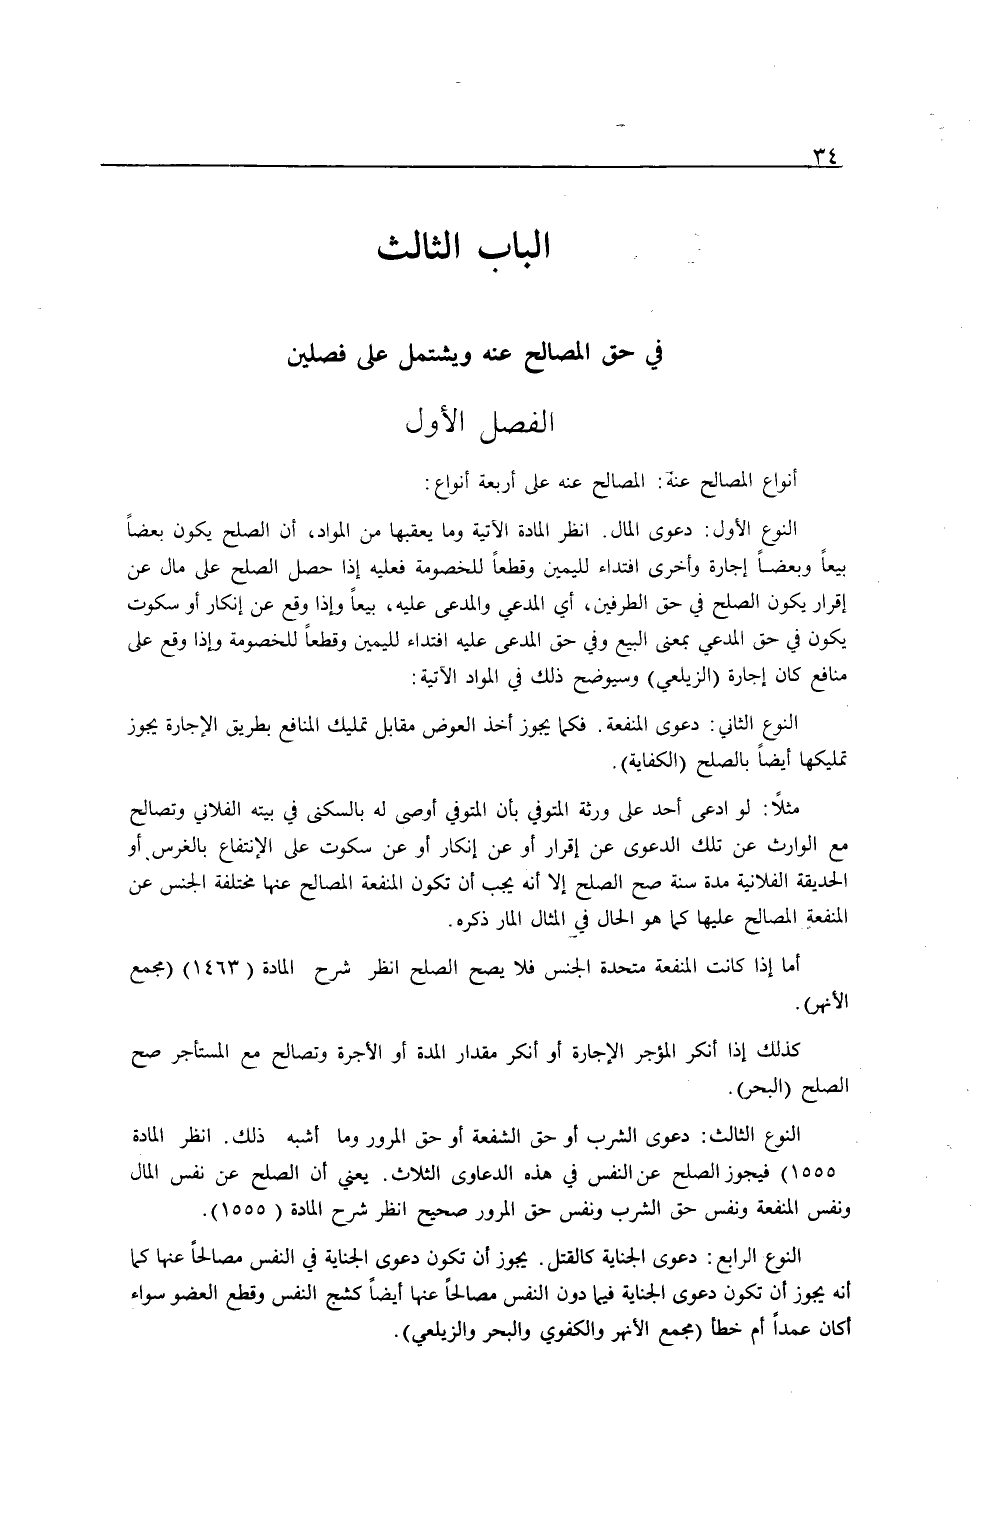 ٣٤
الباب الثالث
في حق المصالح عنه ويشتمل على فصلين
الفصل الأول
أنواع المصالح عنه: المصالح عنه على أربعة أنواع:
النوع الأول: دعوى المال. انظر المادة الآتية وما يعقبها من المواد، أن الصلح يكون بعضاً
بيعاً وبعضاً إجارة وأخرى افتداء لليمين وقطعاً للخصومة فعليه إذا حصل الصلح على مال عن
إقرار يكون الصلح في حق الطرفين، أي المدعي والمدعى عليه، بيعاً وإذا وقع عن إنكار أو سكوت
يكون في حق المدعي بمعنى البيع وفي حق المدعى عليه افتداء لليمين وقطعاً للخصومة وإذا وقع على
منافع كان إجارة (الزيلعي) وسيوضح ذلك في المواد الآتية:
النوع الثاني: دعوى المنفعة. فكما يجوز أخذ العوض مقابل تمليك المنافع بطريق الإجارة يجوز
تمليكها أيضاً بالصلح (الكفاية).
مثلًا: لو ادعى أحد على ورثة المتوفي بأن المتوفي أوصى له بالسكنى في بيته الفلاني وتصالح
مع الوارث عن تلك الدعوى عن إقرار أو عن إنكار أو عن سكوت على الإنتفاع بالغرس أو
الحديقة الفلانية مدة سنة صح الصلح إلا أنه يجب أن تكون المنفعة المصالح عنها مختلفة الجنس عن
المنفعة المصالح عليها كما هو الحال في المثال المار ذكره.
أما إذا كانت المنفعة متحدة الجنس فلا يصح الصلح انظر شرح المادة (١٤٦٣) (مجمع
الأنهر).
كذلك إذا أنكر المؤجر الإجارة أو أنكر مقدار المدة أو الأجرة وتصالح مع المستأجر صح
الصلح (البحر).
النوع الثالث: دعوى الشرب أو حق الشفعة أو حق المرور وما أشبه ذلك. انظر المادة
١٥٥٥) فيجوز الصلح عن النفس في هذه الدعاوى الثلاث. يعني أن الصلح عن نفس المال
ونفس المنفعة ونفس حق الشرب ونفس حق المرور صحيح انظر شرح المادة (١٥٥٥).
النوع الرابع: دعوى الجناية كالقتل. يجوز أن تكون دعوى الجناية في النفس مصالحاً عنها كما
أنه يجوز أن تكون دعوى الجناية فيما دون النفس مصالحاً عنها أيضاً كشج النفس وقطع العضو سواء
أكان عمداً أم خطأ (مجمع الأنهر والكفوي والبحر والزيلعي).